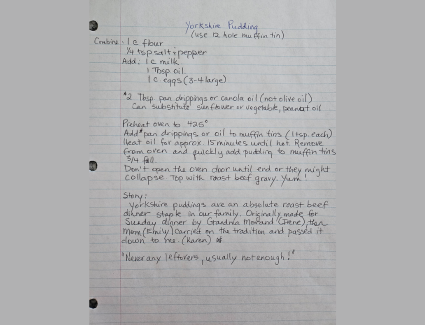 Yorkshire Pudding
(use 12 hole muffin tin)
Combine: 1 c flour
1/4 tsp salt + pepper
Add: 1 c milk
1 Tbsp oil
1 c eggs (3-4 large)
*2 Tbsp pan drippings or canola oil (not olive oil)
Can substitute sunflower or vegetable, peanut oil
Preheat oven to 425°
Add* pan drippings or oil to muffin tins (1 tsp. each)
Heat oil for approx. 15 minutes until hot. Remove
from oven and quickly add pudding to muffin tins
3/4 full.
Don't open the oven door until end or they might
collapse. Top with roast beef gravy. Yum!
Story:
Yorkshire puddings are an absolute roast beef
dinner staple in our family. Originally made for
Sunday dinner by Grandma (Irene) then
Mom (Emily) carried on the tradition and passed it
down to me. (Karen)
"Never any leftovers, usually not enough!"